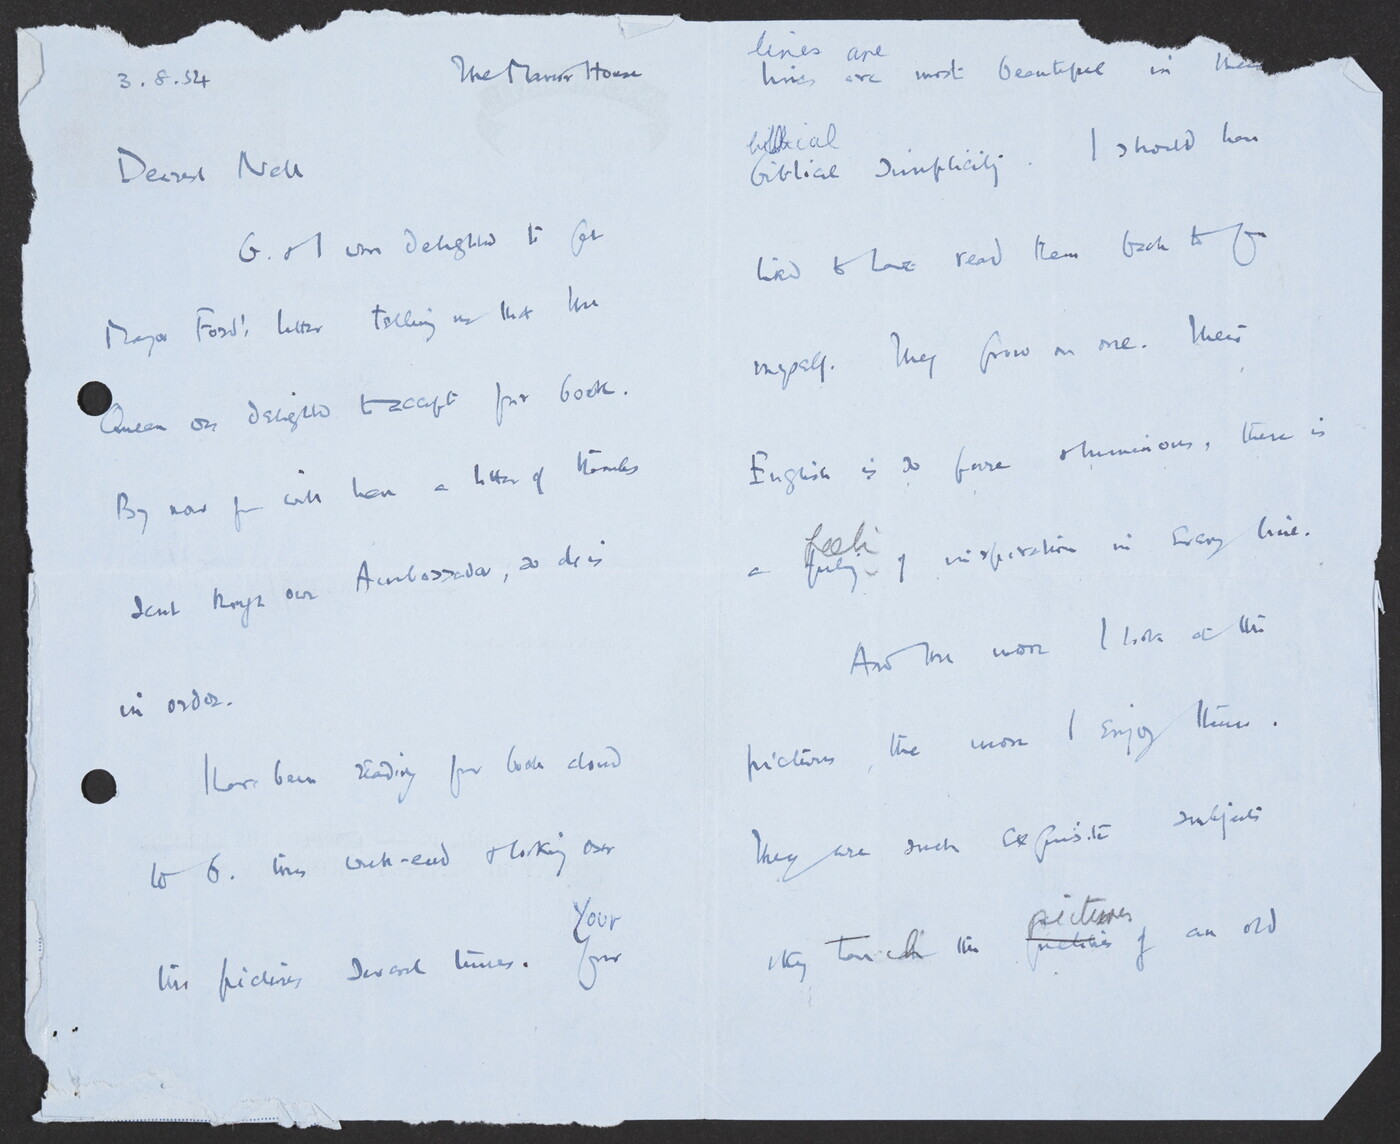 3.8.54
The Manor House
Dearest Nell
G. & I were delighted to get
Major Ford's letter telling us that the
Queen was delighted to accept your book.
By now you will have a letter of thanks
sent through our Ambassador, so all is
in order.
Have been reading your book aloud
to G. this week-end & looking over
the pictures several times. Your
your
lines are
lines are most beautiful in their
biblical
biblical simplicity. I should have
liked to have read them back to you
myself. They grow on one. The
English is so pure & luminous, there is
feeli
a feeling of inspiration in every line.
And the more I look at the
pictures, the more I enjoy them.
They are such exquisite subjects
they touch the pictures of an old
pictures